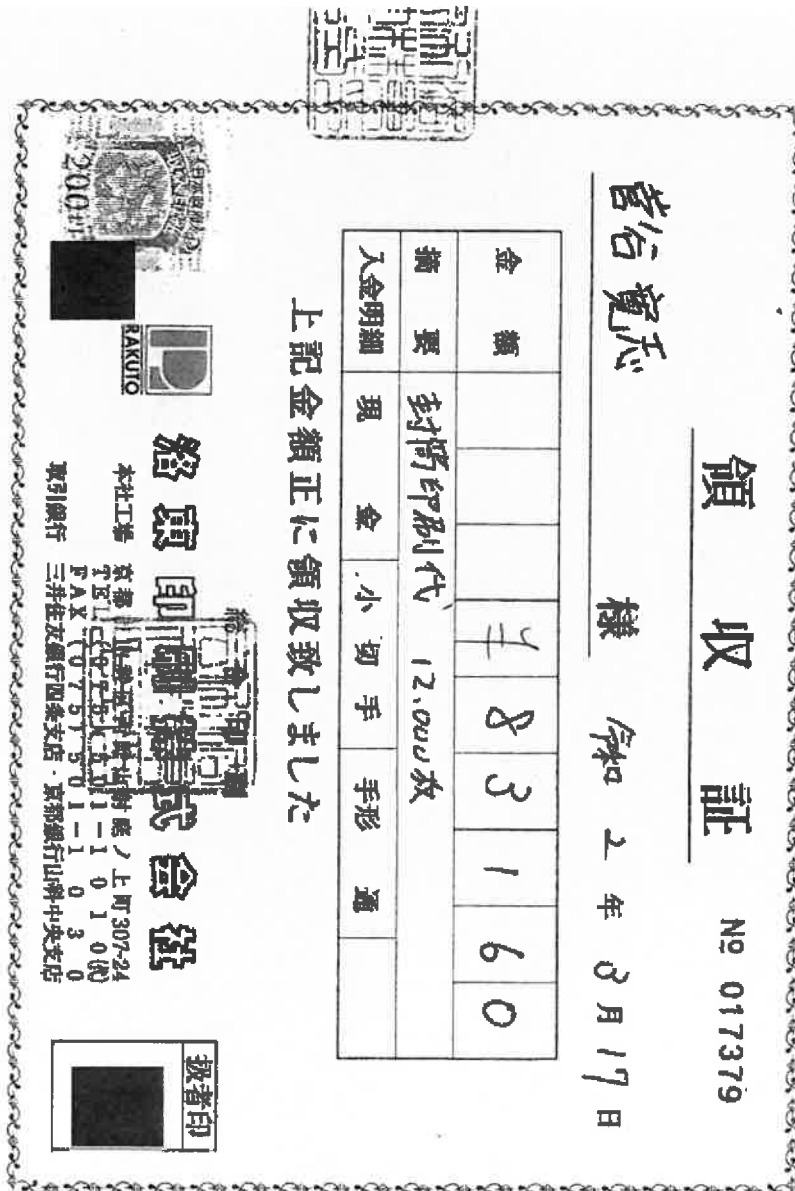 領収証
№ 017379
様 令和 2年 8月17日
金額 ¥83160
摘要 封筒印刷代 12.000枚
入金明細 現金 小切手 手形 通
上記金額正に領収致しました
200円
RAKUTO
印刷株式会社
本社工場 京都 ノ上町307-24
TEL 501-1010㈹
FAX (075)501-1030
取引銀行 三井住友銀行四条支店・京都銀行山科中央支店
扱者印